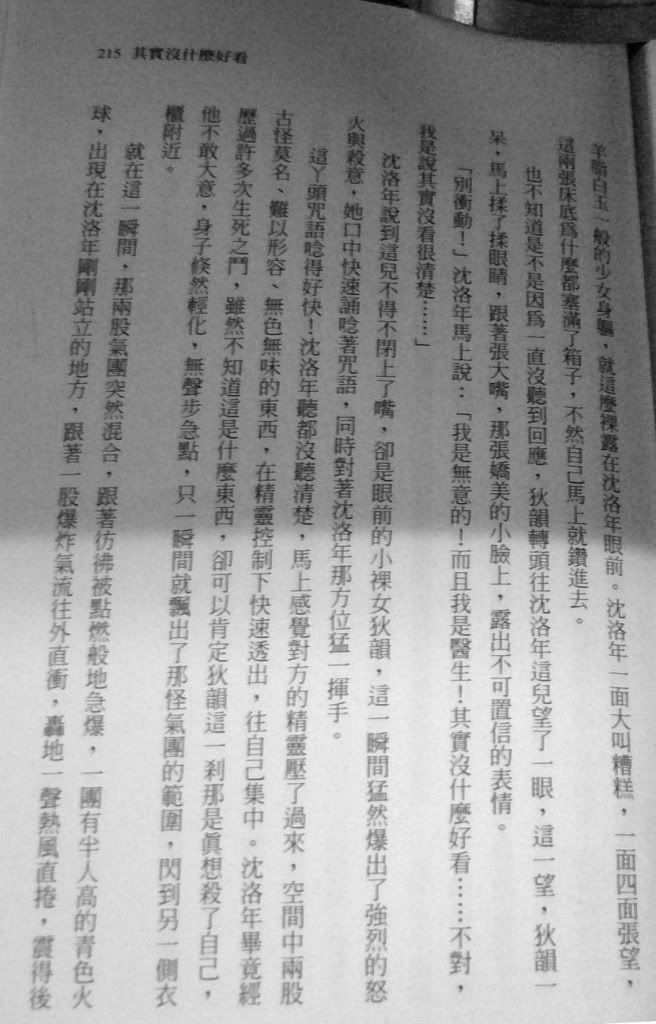 215 其實沒什麼好看
羊脂白玉一般的少女身軀，就這麼裸露在沈洛年眼前。沈洛年一面大叫糟糕，一面四面張望，
這兩張床底為什麼都塞滿了箱子，不然自己馬上就鑽進去。
也不知道是不是因為一直沒聽到回應，狄韻轉頭往沈洛年這兒望了一眼，這一望，狄韻一
呆，馬上揉了揉眼睛，跟著張大嘴，那張嬌美的小臉上，露出不可置信的表情。
「別衝動！」沈洛年馬上說：「我是無意的！而且我是醫生！其實沒什麼好看……不對，
我是說其實沒看很清楚……」
沈洛年說到這兒不得不閉上了嘴，卻是眼前的小裸女狄韻，這一瞬間猛然爆出了強烈的怒
火與殺意，她口中快速誦唸著咒語，同時對著沈洛年那方位猛一揮手。
這丫頭咒語唸得好快！沈洛年聽都沒聽清楚，馬上感覺對方的精靈壓了過來，空間中兩股
古怪莫名、難以形容、無色無味的東西，在精靈控制下快速透出，往自己集中。沈洛年畢竟經
歷過許多次生死之鬥，雖然不知道這是什麼東西，卻可以肯定狄韻這一剎那是真想殺了自己，
他不敢大意，身子倏然輕化，無聲步急點，只一瞬間就飄出了那怪氣團的範圍，閃到另一側衣
櫃附近。
就在這一瞬間，那兩股氣團突然混合，跟著彷彿被點燃般地急爆，一團有半人高的青色火
球，出現在沈洛年剛剛站立的地方，跟著一股爆炸氣流往外直衝，轟地一聲熱風直捲，震得後